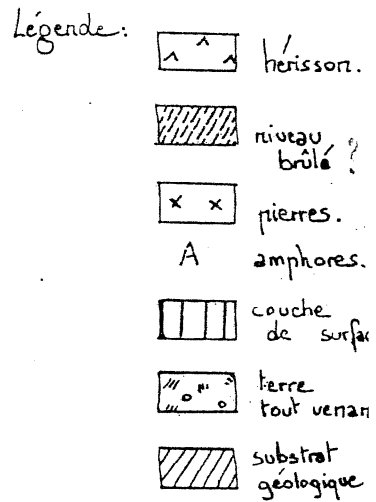 Légende:
hérisson.
niveau
brûlé ?
pierres.
A amphores.
couche
de surfac
terre
tout venan
substrat
géologique